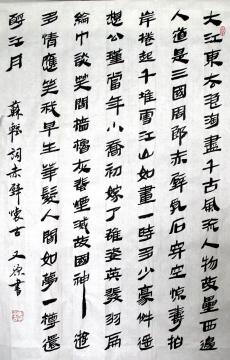 大江東去浪淘盡千古風流人物故壘西邊
人道是三國周郎赤壁乱石穿空驚濤拍
岸捲起千堆雪江山如畫一時多少豪傑遙
想公瑾當年小喬初嫁了雄姿英發羽扇
綸巾談笑間檣櫓灰飛煙滅故國神遊
多情應笑我早生華髮人間如夢一樽還
酹江月
蘇軾詞赤壁懷古 書